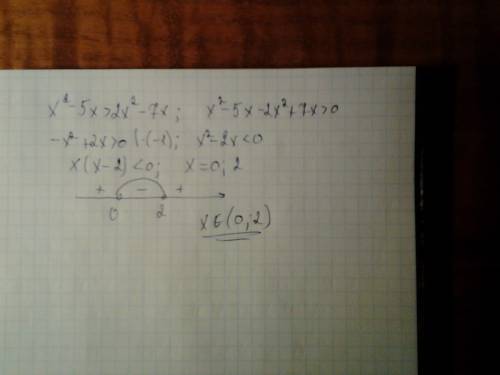 x²-5x>2x²-7x; x²-5x-2x²+7x>0
-x²+2x>0 |·(-1); x²-2x<0
x(x-2)<0; x=0; 2
+ - +
0 2
x∈(0;2)